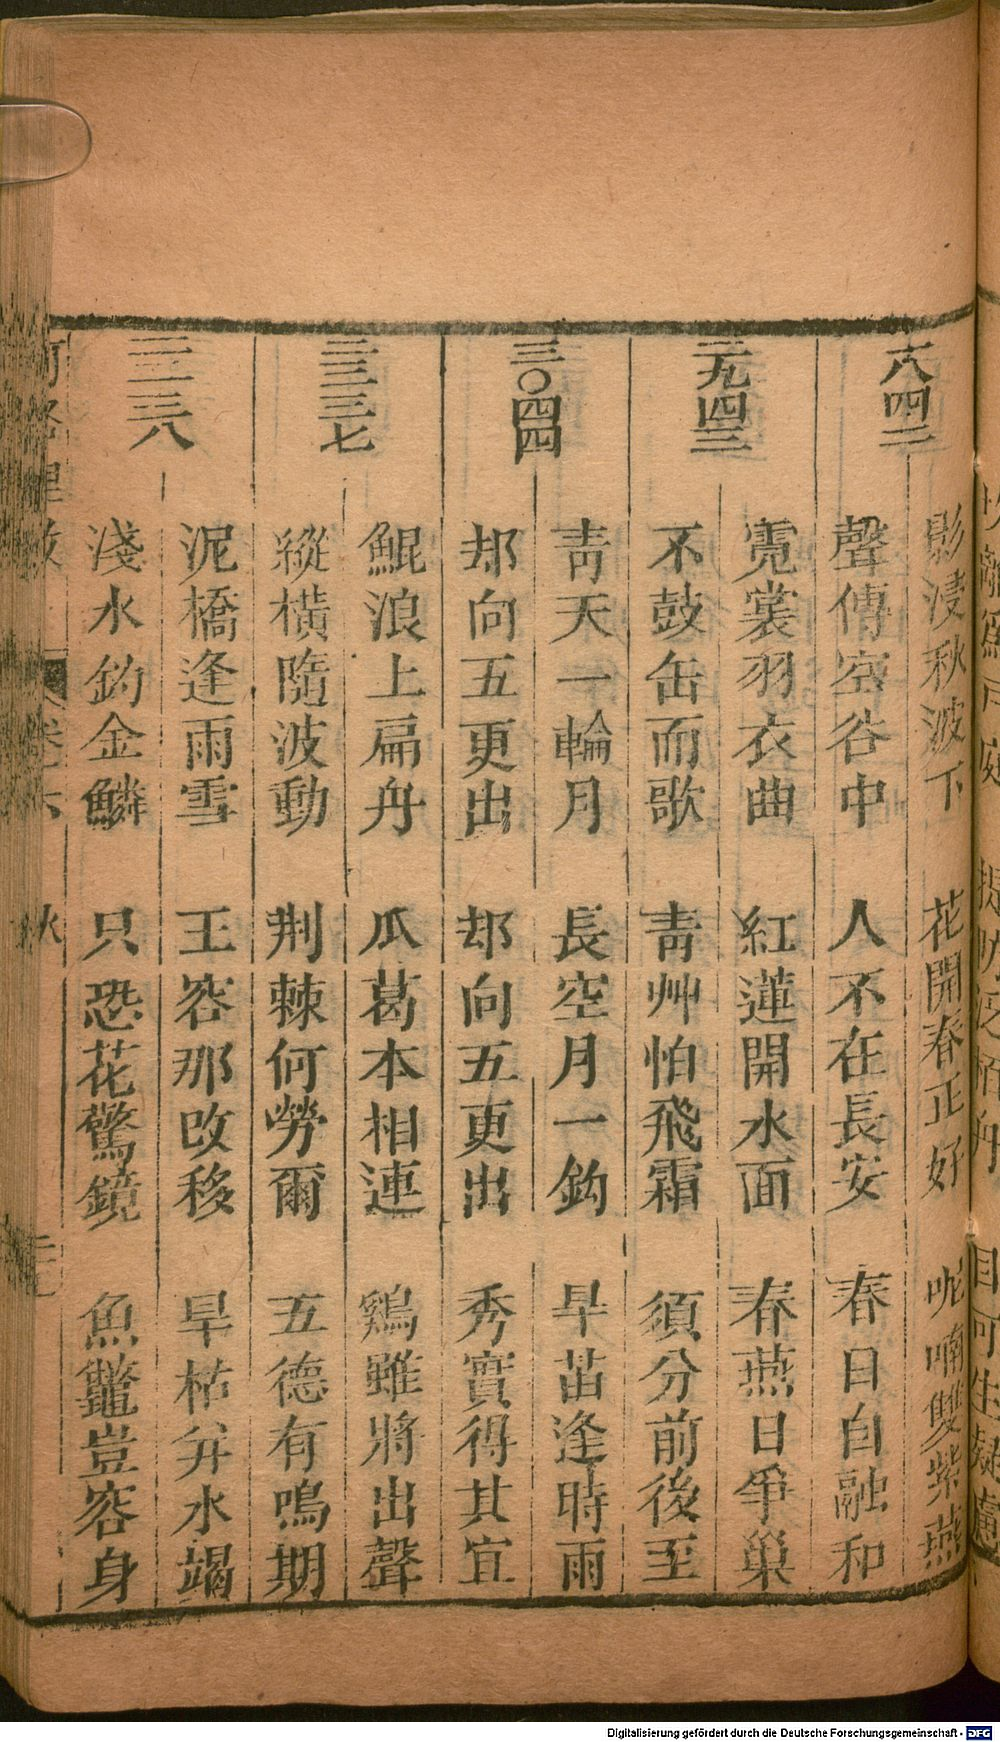 二八四二
影浸秋波下 花開春正好 呢喃雙紫燕
聲傳空谷中 人不在長安 春日自融和
二九四三
霓裳羽衣曲 紅蓮開水面 春燕日爭巢
不鼓缶而歌 青艸怕飛霜 須分前後至
三〇四四
青天一輪月 長空月一鈎 旱苗逢時雨
却向五更出 却向五更出 秀實得其宜
三一三七
鯤浪上扁舟 瓜葛本相連 鷄雖將出聲
縱橫隨波動 荆棘何勞爾 五德有鳴期
三二三八
泥橋逢雨雪 玉容那改移 旱枯井水竭
淺水鈎金鱗 只恐花驚鏡 魚鼈豈容身
Digitalisierung gefördert durch die Deutsche Forschungsgemeinschaft - DFG